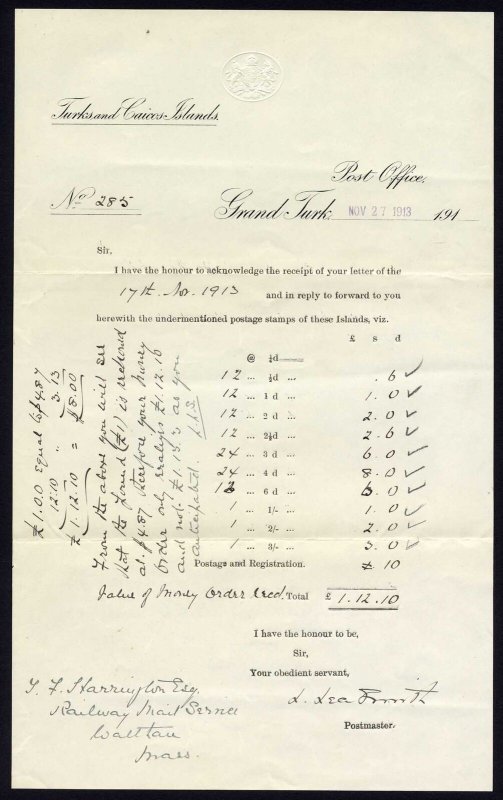 Turks and Caicos Islands.
Post Office,
No 285
Grand Turk, NOV 27 1913 191
Sir,
I have the honour to acknowledge the receipt of your letter of the
17th. Nov. 1913 and in reply to forward to you
herewith the undermentioned postage stamps of these Islands, viz.
£ s d
@ ¼d
12 ... ½d ... .6 ✓
12 ... 1 d ... 1.0 ✓
12 ... 2 d ... 2.0 ✓
12 ... 2½d ... 2.6 ✓
24 ... 3 d ... 6.0 ✓
24 ... 4 d ... 8.0 ✓
12 ... 6 d ... 6.0 ✓
1 ... 1/- ... 1.0 ✓
1 ... 2/- ... 2.0 ✓
1 ... 3/- ... 3.0 ✓
Postage and Registration. 10
Value of Money Order Recd. Total £ 1.12.10
£1.0.0 Equal to $4.87
12.10 " 3.13
£1.12.10 = $8.00
From the above you will see
that the pound (£1) is reckoned
at $4.87 therefore your Money
Order only realizes £1.12.10
and not £1.13.3 as you
anticipated.
I have the honour to be,
Sir,
Your obedient servant,
Smith
Postmaster.
F. Harrington Esq.
Railway Mail Service
Mass.